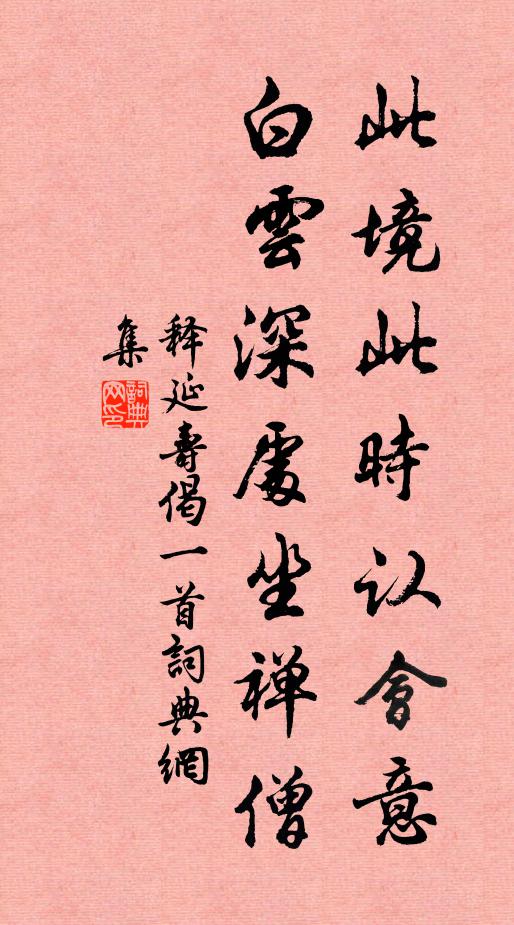 此境此時认會意
白雲深處坐禅僧
释延壽偈一首詞典網
集
詞典网印